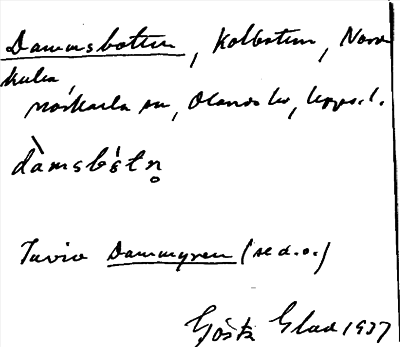 Dammsbotten, Kolbotten, Norr
kulla,
Morkarla sn, Olands hd, Upps. l.
dàmsbótn̥
Invid Dammyren (se d. o.)
Gösta Glad 1937